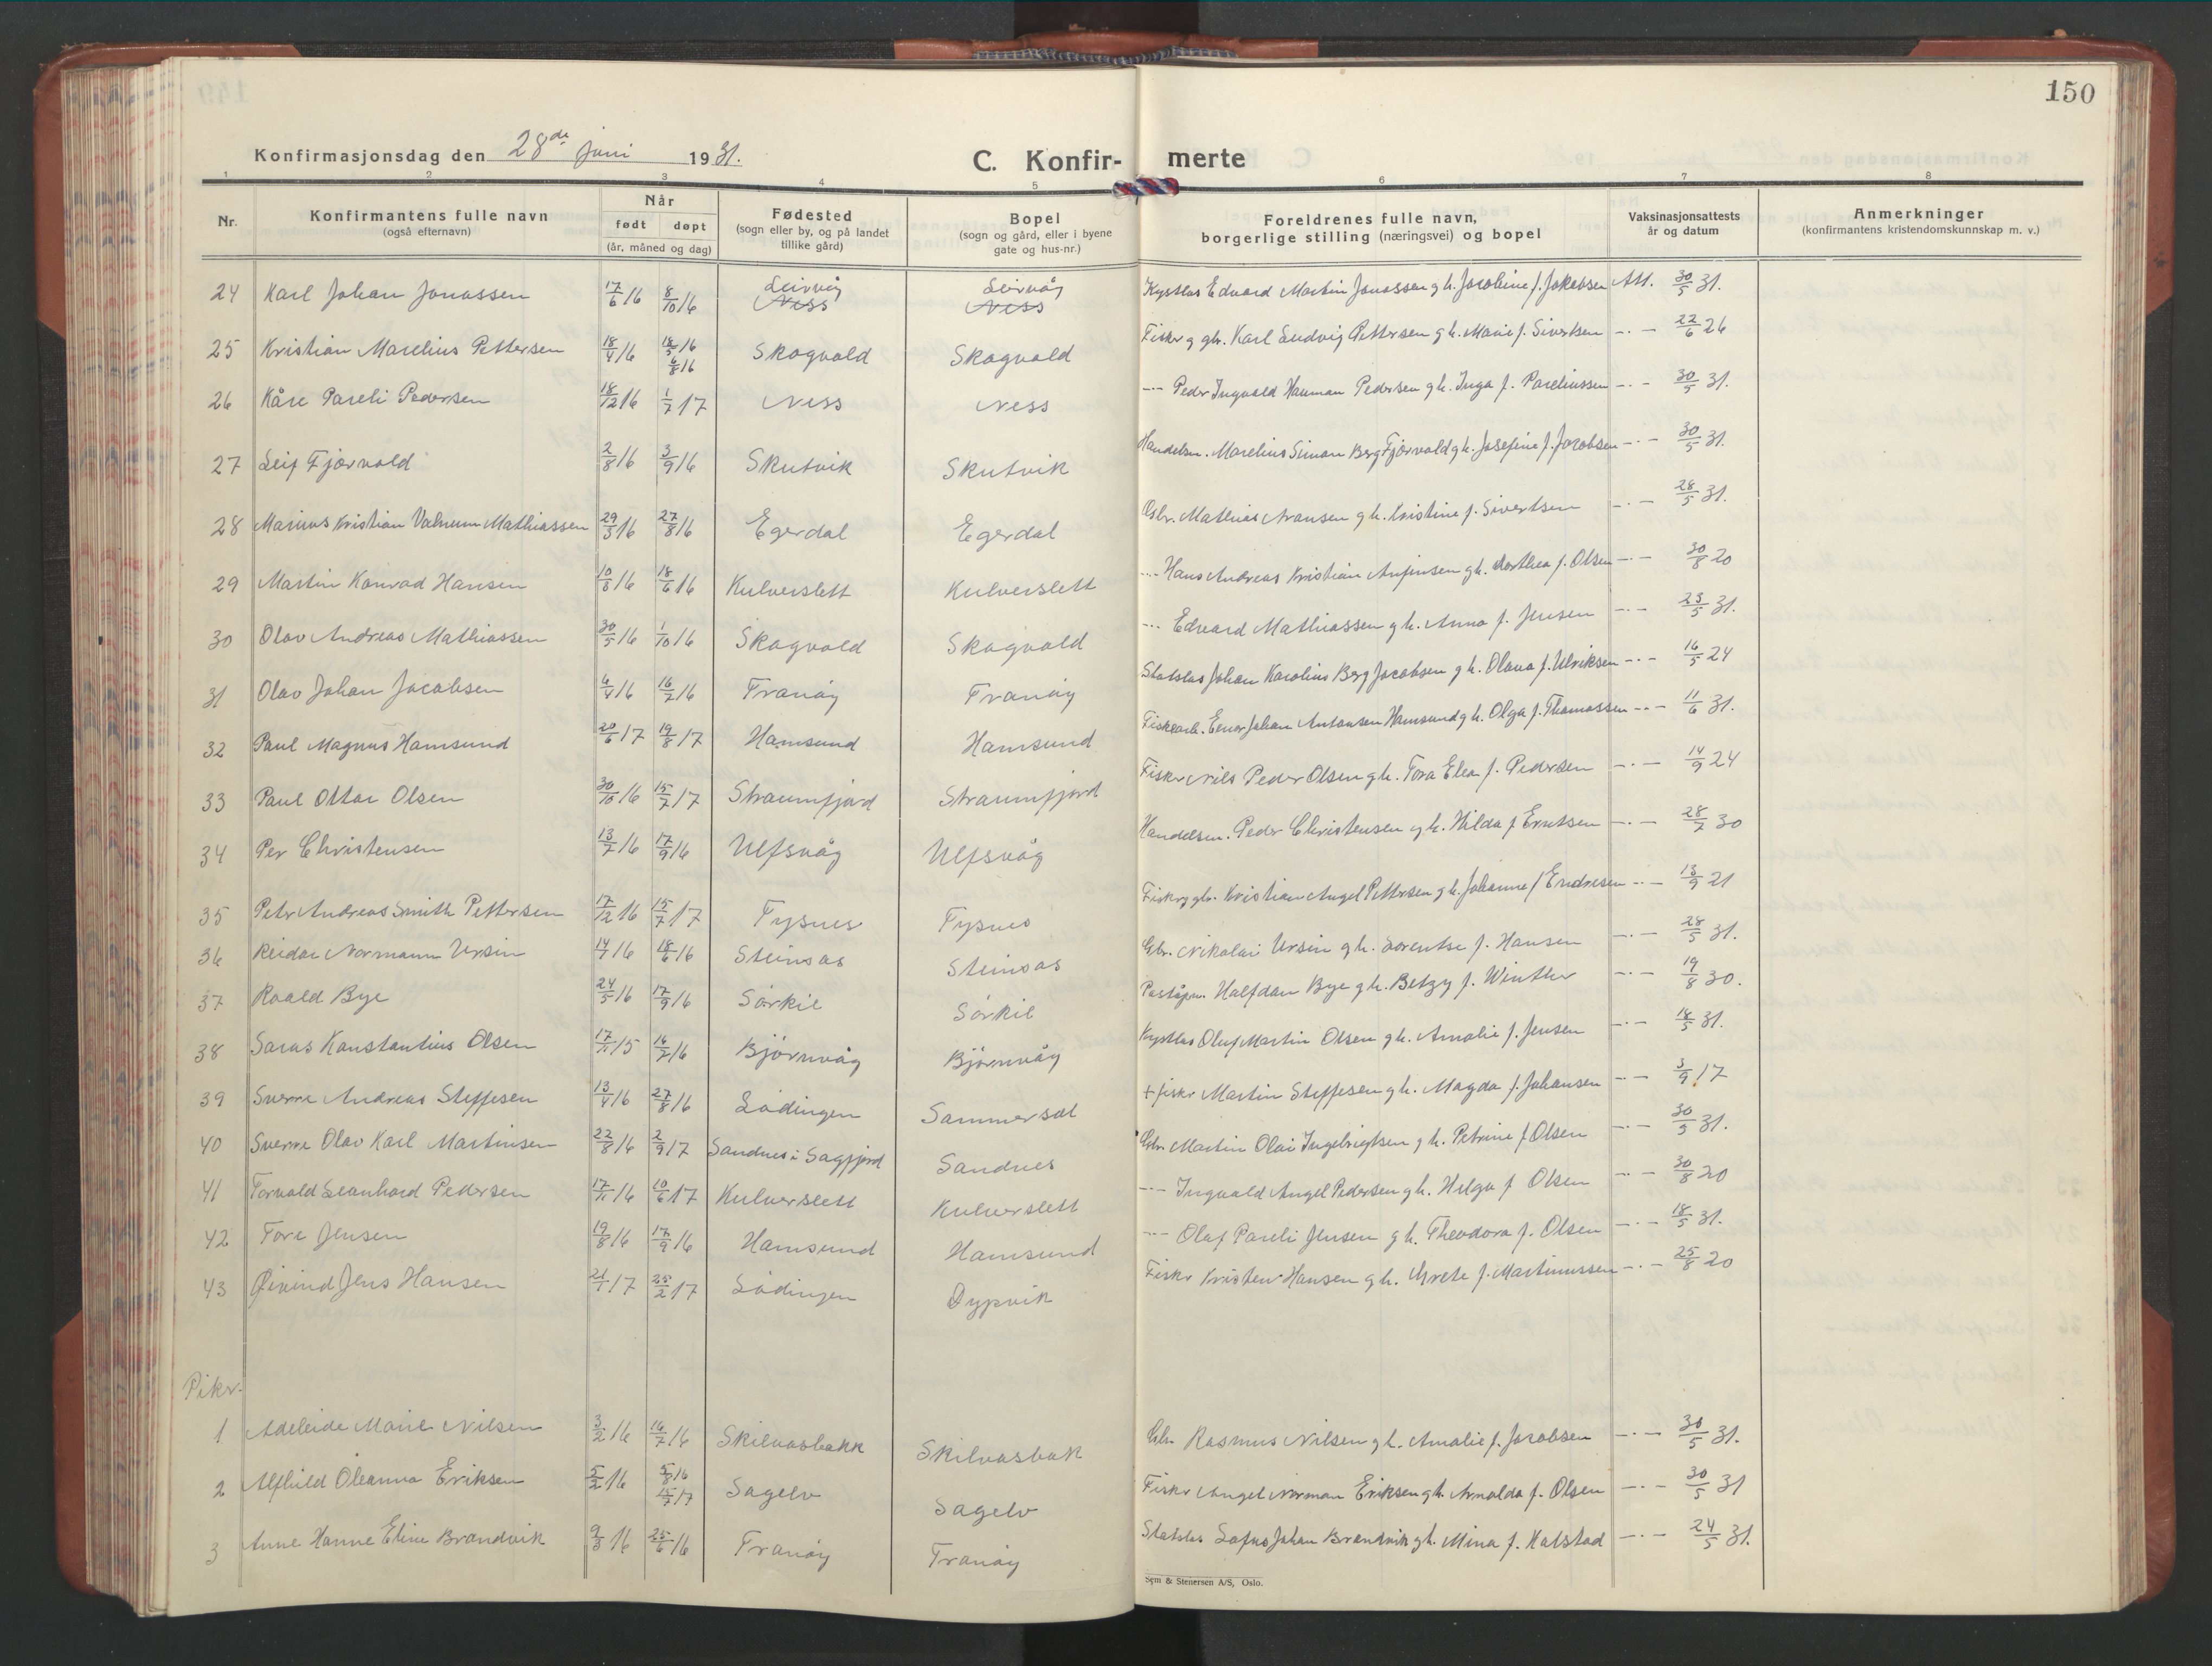 150
Konfirmasjonsdag den 28de juni 1931.
C. Konfir- merte
1 2 3 4 5 6 7 8
Nr. Konfirmantens fulle navn (også efternavn) Når født døpt (år, måned og dag) Fødested (sogn eller by, og på landet tillike gård) Bopel (sogn og gård, eller i byene gate og hus-nr.) Foreldrenes fulle navn, borgerlige stilling (næringsvei) og bopel Vaksinasjonsattests år og datum Anmerkninger (konfirmantens kristendomskunnskap m. v.)
24 Karl Johan Jonassen 17/6 16 8/10 16 Leirvåg Ness Leirvåg Ness Edvard Martin Jonassen g h. Jacobine f. Jakobsen Att. 30/5 31.
25 Kristian Marelius Pettersen 18/4 16 18/5 16 6/8 16 Skogvold Skogvold Fisker g gbr. Karl Ludvig Pettersen g h. Marie f. Sivertsen -"- 22/6 26
26 Kåre Pareli Pedersen 18/12 16 1/7 17 Ness Ness -"- Peder Ingvald Hauman Pedersen g h. Inga f. Pareliussen -"- 30/5 31.
27 Leif Fjærvold 2/8 16 3/9 16 Skutvik Skutvik Handelsm. Marelius Simon Berg Fjærvold g h. Josefine f. Jacobsen -"- 30/5 31.
28 Marius Kristian Mathiassen 29/3 16 27/8 16 Egerdal Egerdal Mathias g h. Kristine f. Sivertsen -"- 28/5 31.
29 Martin Konrad Hansen 10/6 16 18/6 16 Kulverslett Kulverslett -"- Hans Andreas Kristian g h. Dorthea f. Olsen -"- 30/8 20
30 Olav Andreas Mathiassen 30/5 16 1/10 16 Skogvold Skogvold -"- Edvard Mathiassen g h. Anna f. Jensen -"- 23/5 31.
31 Olav Johan Jacobsen 6/4 16 16/7 16 Tranøy Tranøy Statslos Johan Karolius Berg Jacobsen g h. Olava f. Ulriksen -"- 16/5 24
32 Paul Magnus Hamsund 20/6 17 19/8 17 Hamsund Hamsund Fiskearb. Einar Johan Antonsen Hamsund g h. Olga f. Thomassen -"- 11/6 31.
33 Paul Ottar Olsen 30/10 16 15/7 17 Straumfjord Straumfjord Fisker Nils Peder Olsen g h. Tora Elea f. Pedersen -"- 14/9 24
34 Per Christensen 13/7 16 17/9 16 Ulfsvåg Ulfsvåg Handelsm. Peder Christensen g h. Hilda f Erntsen -"- 28/7 30
35 Peter Andreas Smith Pettersen 17/12 16 15/7 17 Tysnes Tysnes Fisker g gbr. Kristian Angel Pettersen g h. Johanne f Endresen -"- 13/9 21
36 Reidar Normann Ursin 14/4 16 18/6 16 Steinsås Steinsås Gbr. Nikolai Ursin g h. Lorentse f. Hansen -"- 28/5 31.
37 Roald Bye 24/5 16 17/9 16 Sørkil Sørkil Poståpn. Halfdan Bye g h. Betzy f. Winther -"- 19/8 30.
38 Saras Konstantius Olsen 17/11 15 16/7 16 Bjørnvåg Bjørnvåg Kystlos Oluf Martin Olsen g h. Amalie f. Jensen -"- 18/5 31.
39 Sverre Andreas Steffesen 13/4 16 27/8 16 Lødingen Sommersel + fisker Martin Steffesen g h. Magda f. Johansen -"- 3/9 17
40 Sverre Olav Karl Martinsen 22/8 16 2/9 17 Sandnes i Sagfjord Sandnes Gbr. Martin Olai Ingebrigtsen g h. Petrine f. Olsen -"- 30/5 31.
41 Torvald Leonhard Pedersen 17/11 16 10/6 17 Kulverslett Kulverslett -"- Ingvald Angel Pedersen g h. Helga f Olsen -"- 30/8 20
42 Tore Jensen 19/8 16 17/9 16 Hamsund Hamsund -"- Olaf Pareli Jensen g h. Theodora f. Olsen -"- 18/5 31.
43 Øivind Jens Hansen 21/1 17 25/2 17 Lødingen Dypvik Fisker Kristen Hansen g h. Grete f. Martinussen -"- 25/8 20
Piker.
1 Adeleide Marie Nilsen 3/2 16 16/7 16 Skilvasbakk Skilvasbak Gbr. Rasmus Nilsen g h. Amalie f. Jacobsen -"- 30/5 31.
2 Alfhild Oleanna Eriksen 5/2 16 5/8 16 15/7 17 Sagelv Sagelv Fisker Angel Norman Eriksen g h. Arnolda f. Olsen -"- 30/5 31
3 Anne Hanne Eline Brandvik 9/3 16 25/6 16 Tranøy Tranøy Statslos Johan Brandvik g h. Mina f. Kalstad -"- 24/5 31.
Sem & Stenersen A/S, Oslo.